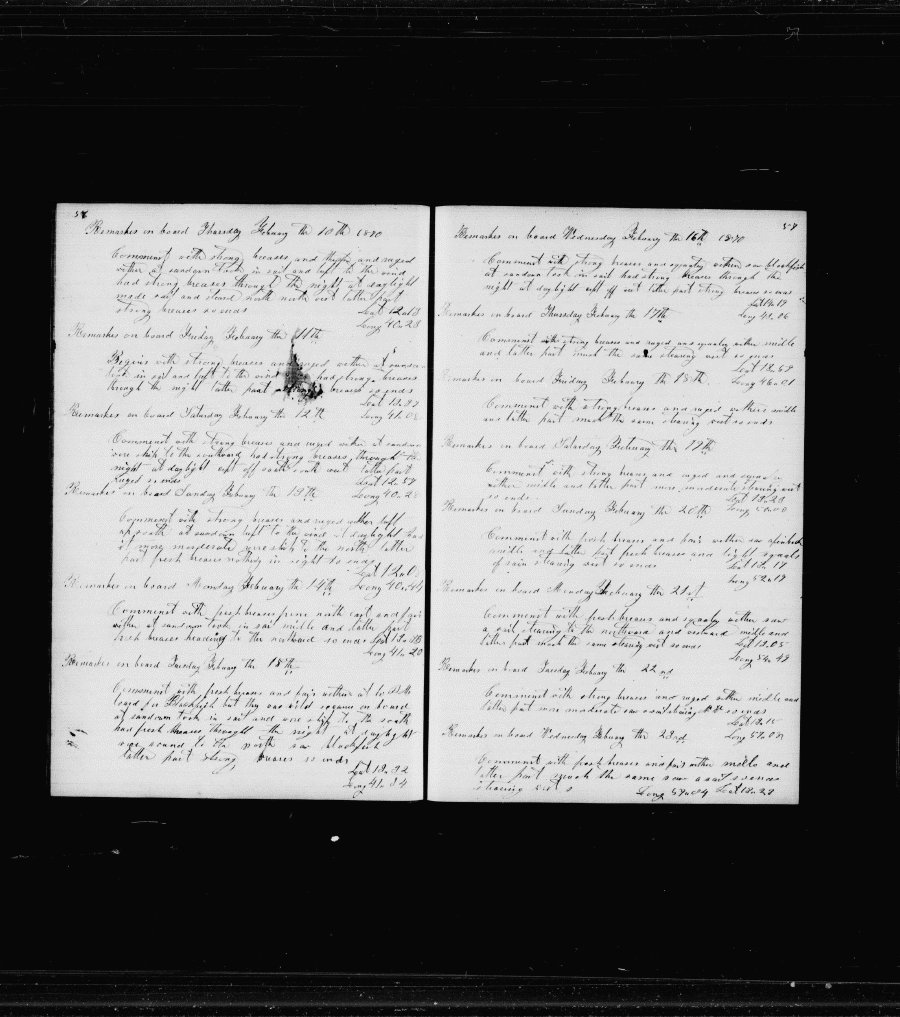 Remarkes on board Thursday Febuary the 10th 1870
Commenct with strong breases and and ruged
wither at sundown took in sail and luft to the wind
had strong breases through the night at daylight
made sail and steard north north west latter part
strong breases so ends Lat 12
Long 40 = 28
Remarkes on board Friday Febuary the 11th
Begins with strong breases and ruged wither at sundown
took in sail and luft to the wind had strong breases
through the night latter part breases so ends
Lat 12
Long 41
Remarkes on board Saturday Febuary the 12th
Commenct with strong breases and ruged wither at sundown
wore ship to the southward had strong breases through the
night at daylight kept off south south west latter part
ruged so ends Lat 12
Remarkes on board Sunday Febuary the 13th Long 40
Commenct with strong breases and ruged wither luft
at sundown luft to the wind at daylight had
it more moderate wore ship to the north latter
part fresh breases nothing in sight so ends
Lat 12
Remarkes on board Monday Febuary the 14th Long 40 = 44
Commenct with fresh breases from north east and fair
wither at sundown took in sail midle and latter part
fresh breases heading to the northward so ends Lat 12
Long 41 = 20
Remarkes on board Tuesday Febuary the 15th
Commenct with fresh breases and fair wither at
loard for Blackfish but they was wild so came on board
at sundown took in sail and wore ship to the south
had fresh breases throught the night at daylight
wore round to the north saw blackfish
latter part strong breases so ends
Lat 12 = 32
Long 41 = 34
57
Remarkes on board Wednesday Febuary the 16th 1870
Commenct with strong breases and squaly wither saw blackfish
at sundown took in sail had strong breases through the
night at daylight kept off west latter part strong breases so ends
Lat
Long 43 = 06
Remarkes on board Thursday Febuary the 17th
Commenct with strong breases and ruged and squaly wither midle
and latter part much the same stearing west so ends
Lat 12
Remarkes on board Friday Febuary the 18th Long 46
Commenct with strong breases and ruged withers midle
and latter part much the same stearing west so ends
Remarkes on board Saturday Febuary the 19th
Commenct with strong breases and ruged and
wither midle and latter part more moderate stearing west
so ends Lat 12 = 23
Remarkes on board Sunday Febuary the 20th Long
Commenct with fresh breases and fair wither saw
midle and latter part fresh breases and light squals
of rain stearing west so ends Lat 12 = 17
Long 52
Remarkes on board Monday Febuary the 21st
Commenct with fresh breases and squaly wither saw
a sail stearing to the northward and westward midle and
latter part much the same stearing west so ends Lat 12 = 05
Long 54 = 49
Remarkes on board Tuesday Febuary the 22nd
Commenct with strong breases and ruged wither midle and
latter part more moderate saw a sail stearing so ends
Lat 12
Remarkes on board Wednesday Febuary the 23rd Long 57
Commenct with fresh breases and fair wither midle and
latter part much the same saw a sail so ends
stearing west Long 59 = 34 Lat 12 = 28